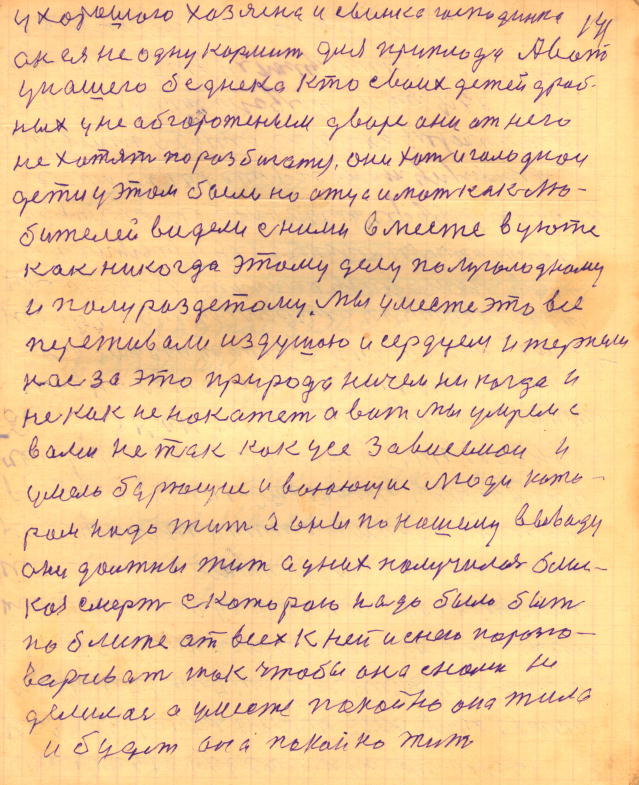 у хорошого хозяена и свинка господинка 141
он ея не одну кормит для приплода А вот
у нашего беднека кто своих детей дроб-
ных у не абгороженым дворе они от него
не хотят поразбигатся, они хот и голоднои
дети у этом были но отца и мат как лю-
бителей видели с ними вместе в уюте
как никогда этому делу полуголодному
и полураздетому. Мы уместе это все
переживали из душою и сердцем и терпели
нас за это природа ничем никогда и
некак не накажет а вот мы умрем с
вами не так как усе зависимои и
умело барющие и воюющие люди кото-
рам надо жит а оны по нашему вываду
они должны жит а у них получилая блис-
кая смерт с которою надо было быт
по ближе от всех к ней и снею пораз-
варчиват так чтобы она снами не
делилая а уместе покойно она жила
и будет она покойно жит